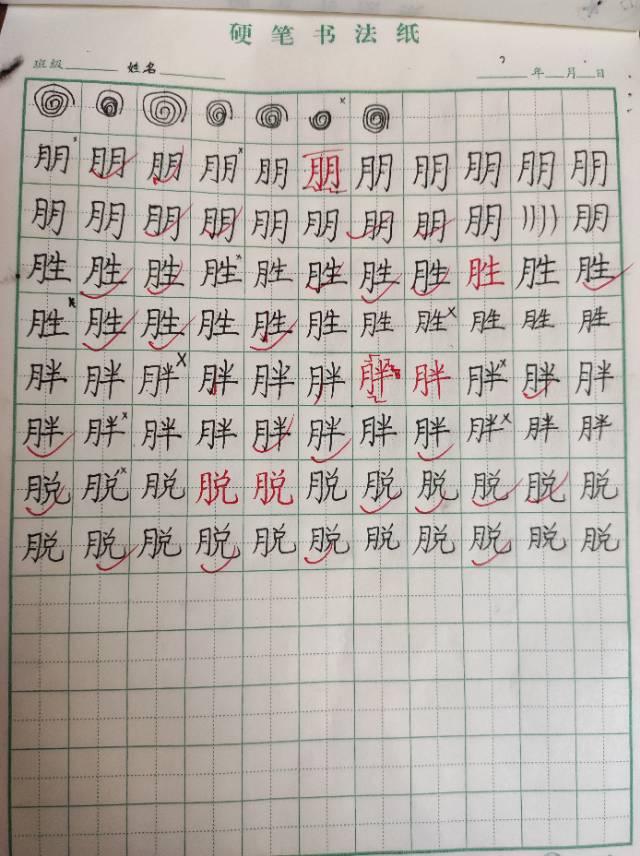 硬笔书法纸
班级 姓名 年 月 日
朋朋朋朋朋朋朋朋朋朋朋
朋朋朋朋朋朋朋朋朋 朋
胜胜胜胜胜胜胜胜胜胜胜
胜胜胜胜胜胜胜胜胜胜胜
胖胖胖胖胖胖胖胖胖胖胖
胖胖胖胖胖胖胖胖胖胖胖
脱脱脱脱脱脱脱脱脱脱脱
脱脱脱脱脱脱脱脱脱脱脱